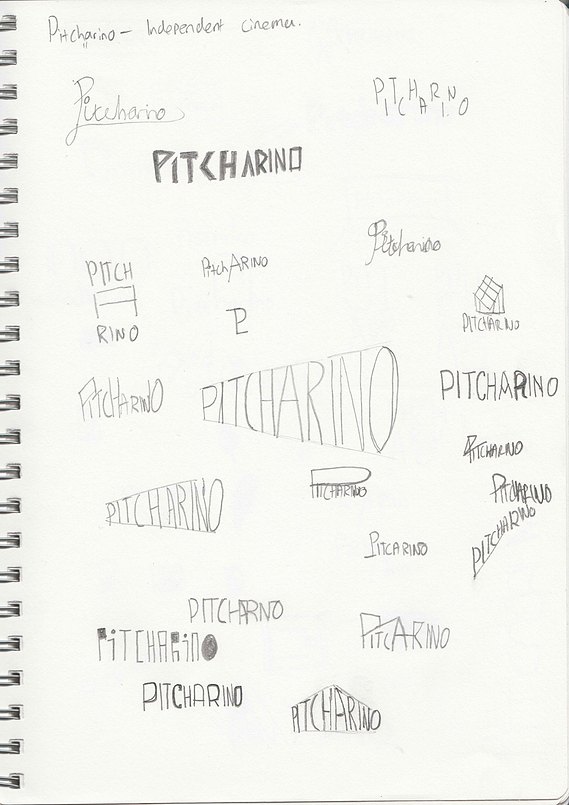 Pitcharino - Independent cinema.
Pitcharino
PITCHARINO
PITCHARINO
Pitcharino
PitchARINO
PITCH
A
RINO
P
PITCHARINO
PITCHARINO
PITCHARINO
PITCHARINO
PITCHARINO
PITCHARINO
PITCHARINO
PITCHARINO
PITCHARINO
PITCHARINO
PITCARINO
PITCHARNO
PITCARINO
PiTCHARinO
PITCHARINO
PITCHARINO